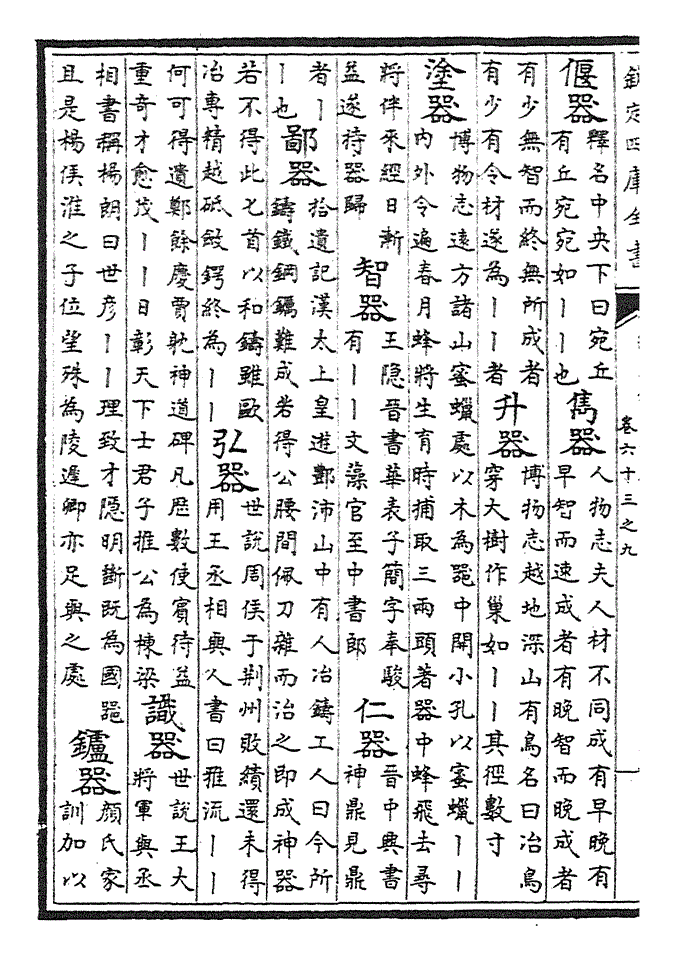 欽定四庫全書
卷六十三之九
偃器
釋名中央下曰宛丘
有丘宛宛如丨丨也
雋器
人物志夫人材不同成有早晚有
早智而速成者有晚智而晚成者
有少無智而終無所成者
有少有令材遂為丨丨者
升器
博物志越地深山有鳥名曰冶鳥
穿大樹作巢如丨丨其徑數寸
塗器
博物志遠方諸山蜜蠟處以木為器中開小孔以蜜蠟丨丨
內外令遍春月蜂將生育時捕取三兩頭著器中蜂飛去尋
將伴來經日漸
益遂持器歸
智器
王隱晉書華表子簡字奉駿
有丨丨文藻官至中書郎
仁器
晉中興書
神鼎見鼎
者丨
丨也
鄙器
拾遺記漢太上皇遊酆沛山中有人冶鑄工人曰今所
鑄鐵鋼礪難成若得公腰間佩刀雜而冶之即成神器
若不得此匕首以和鑄雖歐
冶專精越砥斂鍔終為丨丨
弘器
世說周侯于荆州敗績還未得
用王丞相與人書曰雅流丨丨
何可得遺鄭餘慶賈耽神道碑凡歴數使賓待益
重奇才愈茂丨丨日彰天下士君子推公為棟梁
識器
世說王大
將軍與丞
相書稱楊朗曰世彥丨丨理致才隱明斷既為國器
且是楊侯淮之子位望殊為陵遲卿亦足與之處
鑪器
顏氏家
訓加以